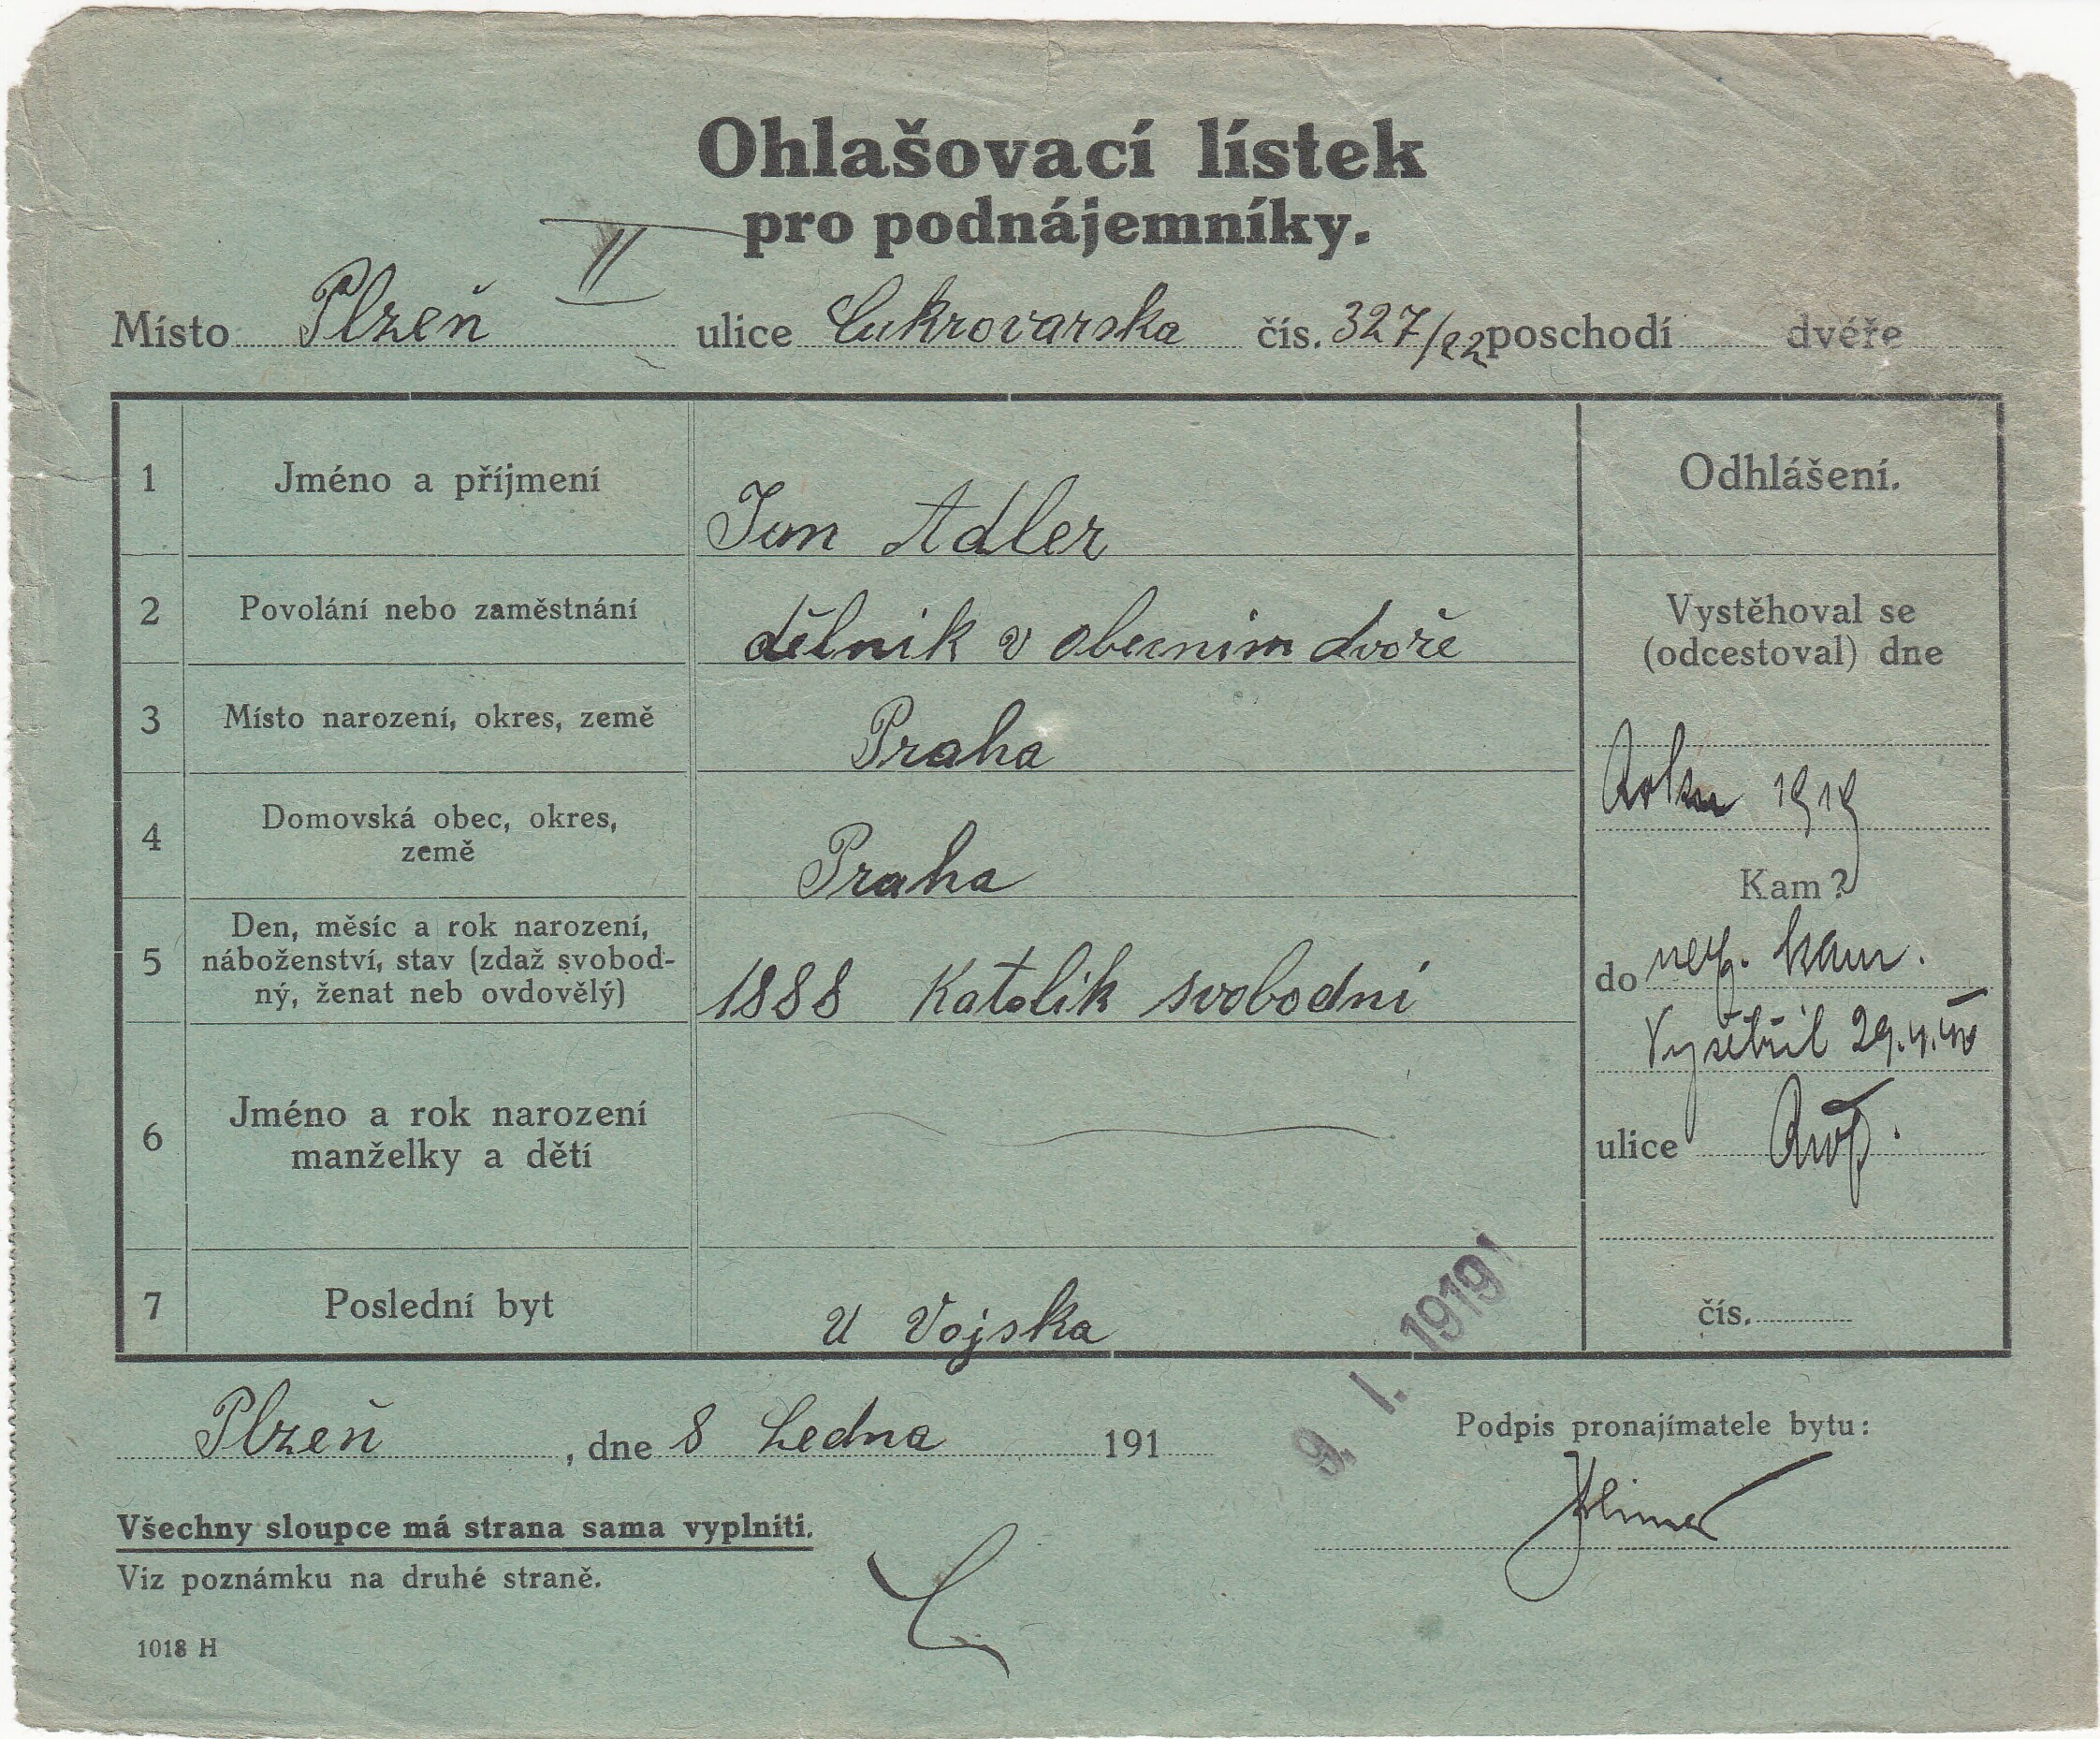 Ohlašovací lístek
pro podnájemníky.
II
Místo Plzeň ulice Cukrovarska čís. 327/22 poschodí dvéře
1 Jméno a příjmení Jan Adler Odhlášení.
2 Povolání nebo zaměstnání dělnik v obecnim dvoře
Vystěhoval se
(odcestoval) dne
3 Místo narození, okres, země Praha
Roku 1919
4 Domovská obec, okres,
země
Praha
Kam?
5 Den, měsíc a rok narození,
náboženství, stav (zdaž svobod-
ný, ženat neb ovdovělý)
1888 Katolik svobodni
do kam.
Vyšetřil 29.
6 Jméno a rok narození
manželky a dětí
ulice
7 Poslední byt U Vojska
čís.
9. I. 1919
Plzeň, dne 8 Ledna 191
Podpis pronajímatele bytu:
Všechny sloupce má strana sama vyplniti.
Viz poznámku na druhé straně.
1018 H